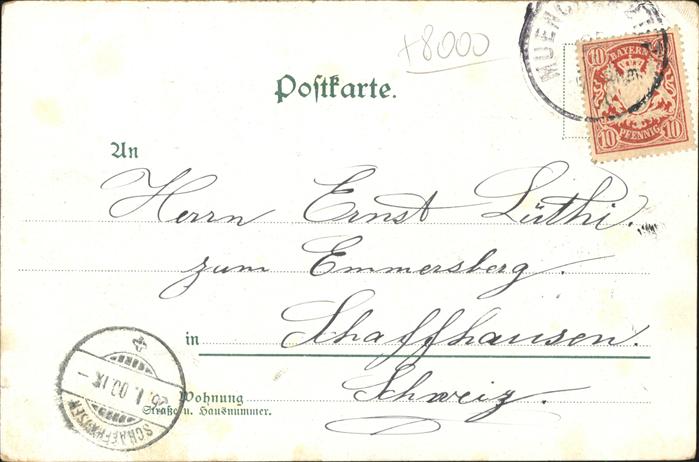 +8000
MUENCHEN
10 BAYERN 10
10 PFENNIG 10
Postkarte.
An
Herrn Ernst Lüthi.
zum Emmersberg.
in Schaffhausen.
Schweiz.
Wohnung
Straße u. Hausnummer.
SCHAFFHAUSEN